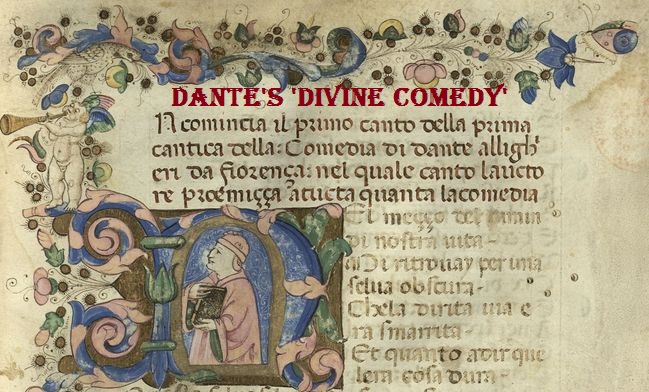 DANTE'S 'DIVINE COMEDY'
IN comincia il primo canto della prima
cantica della: Comedia di dante alligh
eri da fiorença: nel quale canto laucto
re proemiçça atucta quanta lacomedia
NEl meçço del camin
di nostra vita -
Mi ritrouay per una
selua obscura -
Chela dirita uia e
ra smarrita -
Et quanto adir que
lera cosa dura -